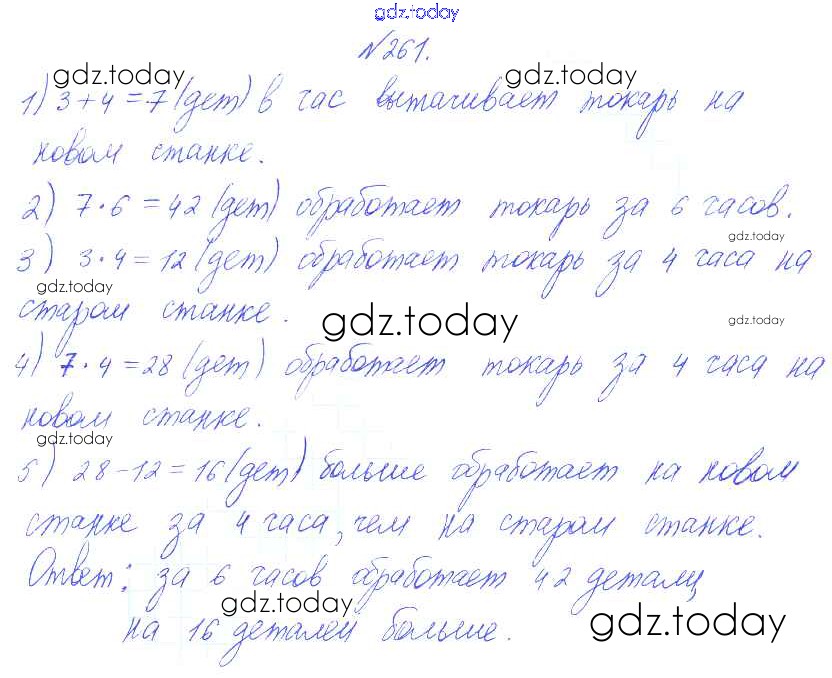 gdz.today
№261.
gdz.today gdz.today
1) 3+4=7 (дет) в час вытачивает токарь на
новом станке.
2) 7·6=42 (дет) обработает токарь за 6 часов.
gdz.today
3) 3·4=12 (дет) обработает токарь за 4 часа на
gdz.today
старом станке.
gdz.today gdz.today
4) 7·4=28 (дет) обработает токарь за 4 часа на
новом станке.
gdz.today
5) 28-12=16 (дет) больше обработает на новом
станке за 4 часа, чем на старом станке.
Ответ: за 6 часов обработает 42 детали,
gdz.today gdz.today
на 16 деталей больше.